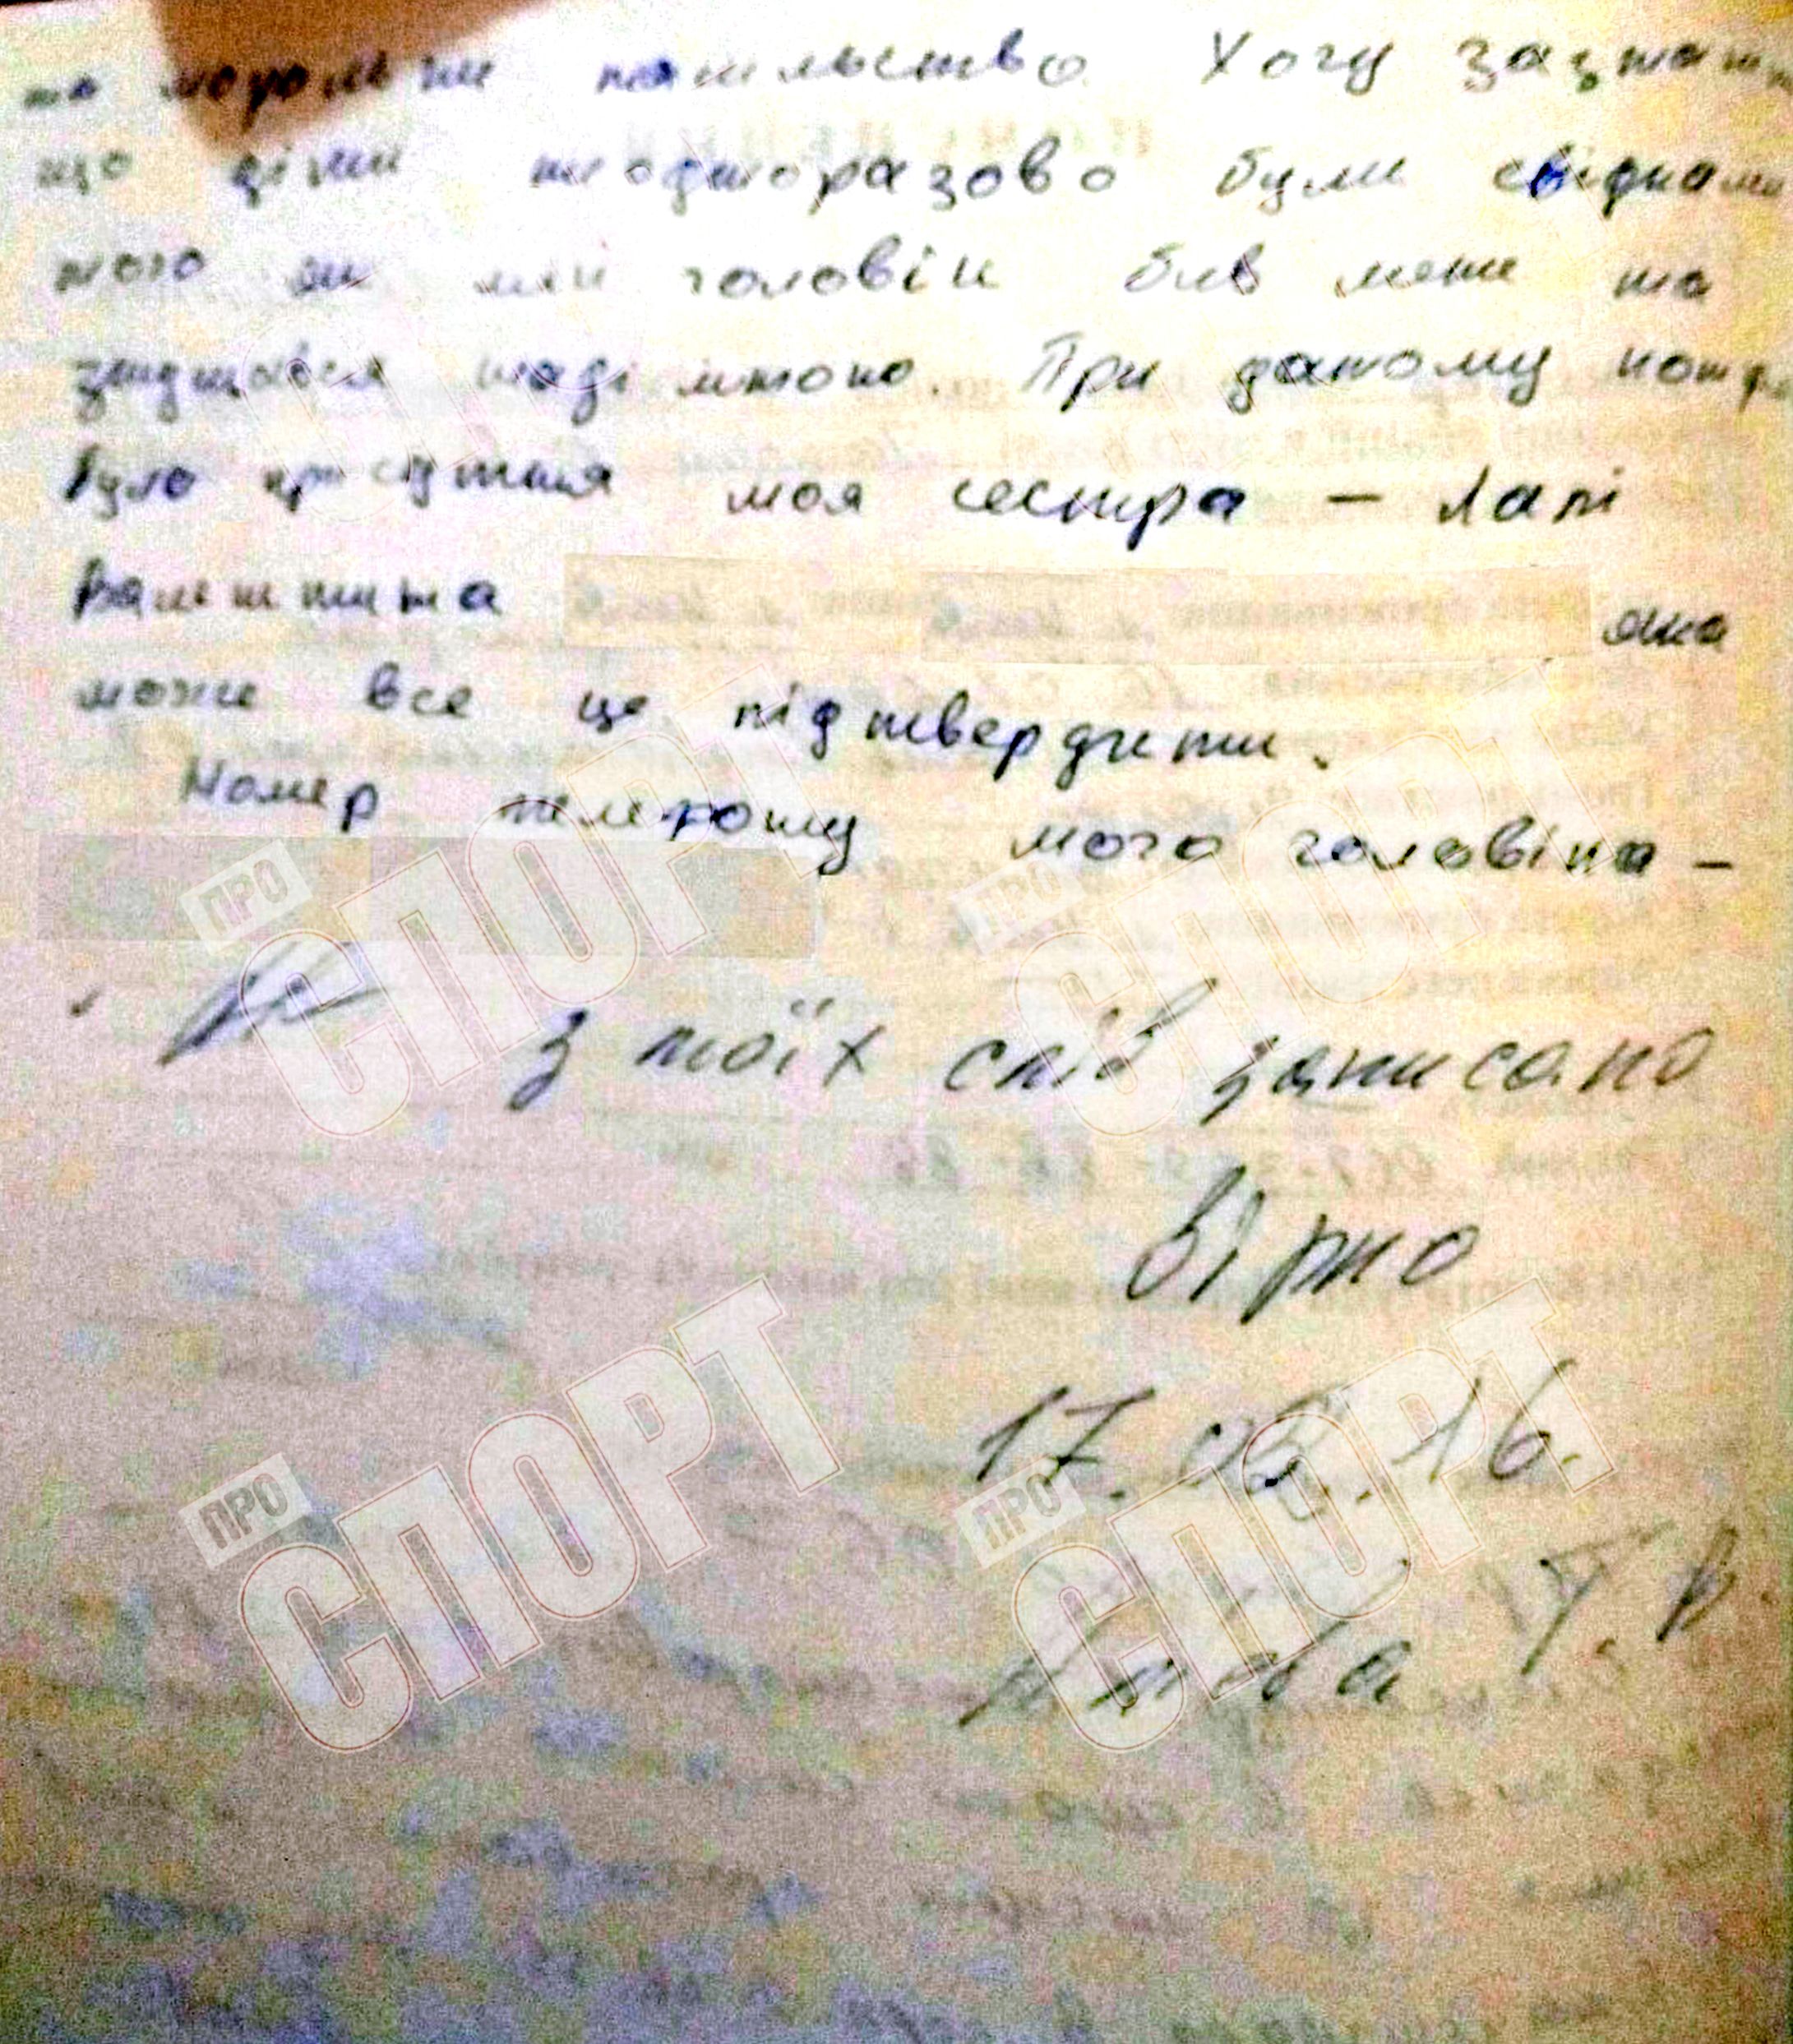 та моральне насильство. Хочу зазначи
що діти неодноразово були свідками
того як мій чоловік бив мене та
знущався наді мною. При даному
було присутня моя сестра – Лапі
Валентина яка
може все це підтвердити.
Номер телефону мого чоловіка –
З моїх слів записано
вірно
17. .16.
Т. В.
ПРО СПОРТ
ПРО СПОРТ
ПРО СПОРТ
ПРО СПОРТ